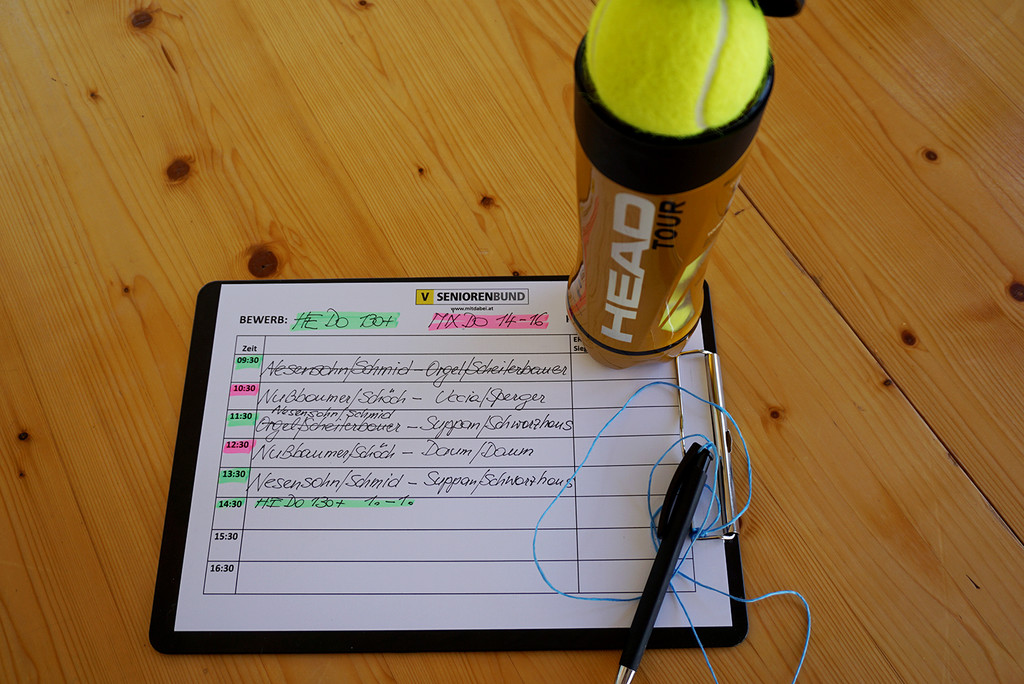 HEAD
TOUR
V SENIORENBUND
www.mitdabei.at
BEWERB: HE DO 130+ MX DO 14-16
Zeit
09:30 Nesensohn/Schmid - Orgel/Scheiterbauer
10:30 Nußbaumer/Schöch - Uccia/Sperger
Nesensohn/Schmid
11:30 Orgel/Scheiterbauer - Suppan/Schwarzhans
12:30 Nußbaumer/Schöch - Daum/Daum
13:30 Nesensohn/Schmid - Suppan/Schwarzhans
14:30 HE DO 130+ 1. - 1.
15:30
16:30